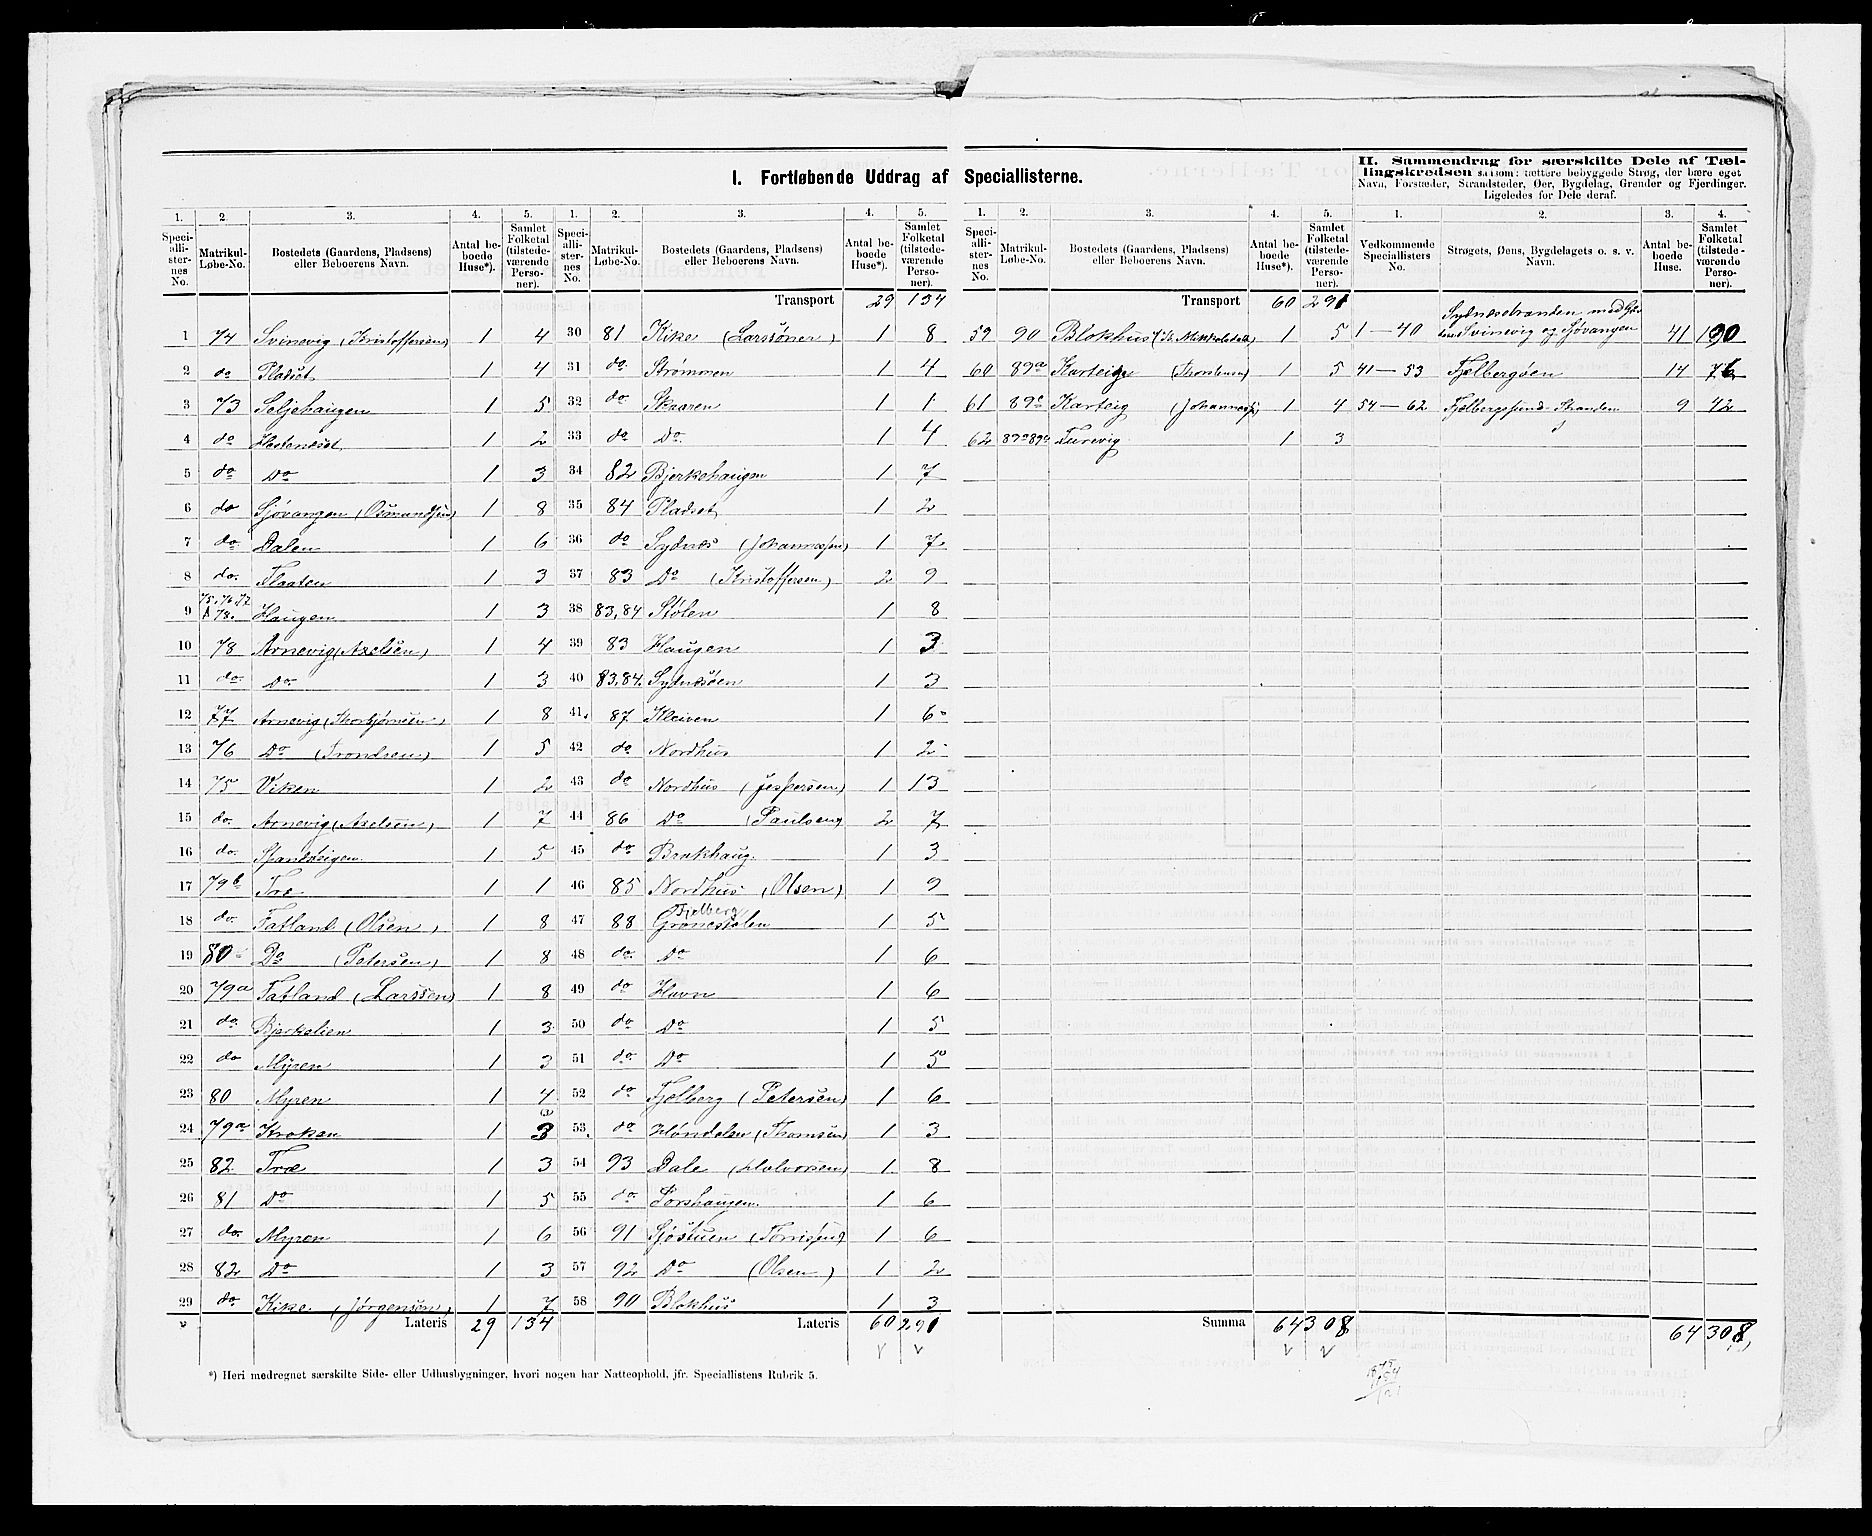 I. Fortløbende Uddrag af Speciallisterne.
II. Sammendrag for særskilte Dele af Tæl-
lingskredsen saasom: tættere bebyggede Strøg, der bære eget
Navn, Forstæder, Strandsteder, Øer, Bygdelag, Grender og Fjerdinger.
Ligeledes for Dele deraf.
1. 2. 3. 4. 5. 1. 2. 3. 4. 5. 1. 2. 3. 4. 5. 1. 2. 3. 4.
Speci-alli-ster-nes No. Matrikul-Løbe-No. Bostedets (Gaardens, Pladsens) eller Beboerens Navn. Antal be-boede Huse*). Samlet Folketal (tilstede-værende Perso-ner).
Speci-alli-ster-nes No. Matrikul-Løbe-No. Bostedets (Gaardens, Pladsens) eller Beboerens Navn. Antal be-boede Huse*). Samlet Folketal (tilstede-værende Perso-ner).
Speci-alli-ster-nes No. Matrikul-Løbe-No. Bostedets (Gaardens, Pladsens) eller Beboerens Navn. Antal be-boede Huse*). Samlet Folketal (tilstede-værende Perso-ner).
Vedkommende Speciallisters No. Strøgets, Øens, Bygdelagets o. s. v. Navn. Antal be-boede Huse. Samlet Folketal (tilstede-værende Perso-ner).
1 74 Svinevig (Kristoffersen) 1 4
2 do Pladset 1 4
3 73 Seljehaugen 1 5
4 do Hestenæset 1 2
5 do Do 1 3
6 do Sjøvangen (Osmundsen) 1 8
7 do Dalen 1 6
8 do. Flaaten 1 3
9 75, 76, 77 & 78. Haugen 1 3
10 78 Arnevig (Axelsen) 1 4
11 do. Do. 1 3
12 77 Arnevig (Thorbjørnsen) 1 8
13 76 Do (Trondsen) 1 5
14 75 Viken 1 2
15 do. Arnevig (Axelsen) 1 7
16 do. 1 5
17 79b Træ 1 1
18 do. Fatland (Olsen) 1 8
19 80 Do (Petersen) 1 8
20 79a Fatland (Larssen) 1 8
21 do Bjerkelien 1 3
22 do Myren 1 3
23 80 Myren 1 4
24 79a Kroken 1 3
25 82 Træ 1 3
26 81 Do 1 5
27 do. Myren 1 6
28 82 Do 1 3
29 do. Kike (Jørgensen) 1 7
Lateris 29 134
Transport 29 134
30 81 Kike (Larssøner) 1 8
31 do. Strømmen 1 4
32 do. Skaaren 1 1
33 do Do. 1 4
34 82 Bjerkehaugen 1 7
35 84 Pladset 1 2
36 do Sydnes (Johannessen) 1 7
37 83 Do (Kristoffersen) 2 9
38 83,84 Stølen 1 8
39 83 Haugen 1 3
40 83,84. Sydnesøen 1 3
41. 87 Kleiven 1 6
42 do Nordhus 1 2
43 do Nordhus (Jespersen) 1 13
44 86 Do (Paulsen) 2 7
45 do Brekhaug. 1 3
46 85 Nordhus (Olsen) 1 9
47 88 Fjelberg Grønestølen 1 5
48 do. Do 1 6
49 do Havn 1 6
50 do Do 1 5
51 do Do 1 5
52 do Fjelberg (Petersen) 1 6
53. do (Thomsen) 1 3
54 93 Dale (Halvorsen) 1 8
55 do. Porshaugen. 1 6
56 91 Sjøstuen 1 6
57 92 Do (Olsen) 1 2
58 90 Blokhus 1 3
Lateris 60 291
Transport 60 291
59 90 Blokhus 1 5
60 89a Karteig (Thorstensen) 1 5
61 89c Karteig (Johannesen) 1 4
62 Turevig 1 3
Summa 64 308
1 — 40 Sydnesstranden med Svinevig og Sjøvangen 41 190
41 — 53 Fjelbergøen 14 76
54 — 62 Fjelbergsund-Stranden 9 42
64 308
*) Heri medregnet særskilte Side- eller Udhusbygninger, hvori nogen har Natteophold, jfr. Speciallistens Rubrik 5.